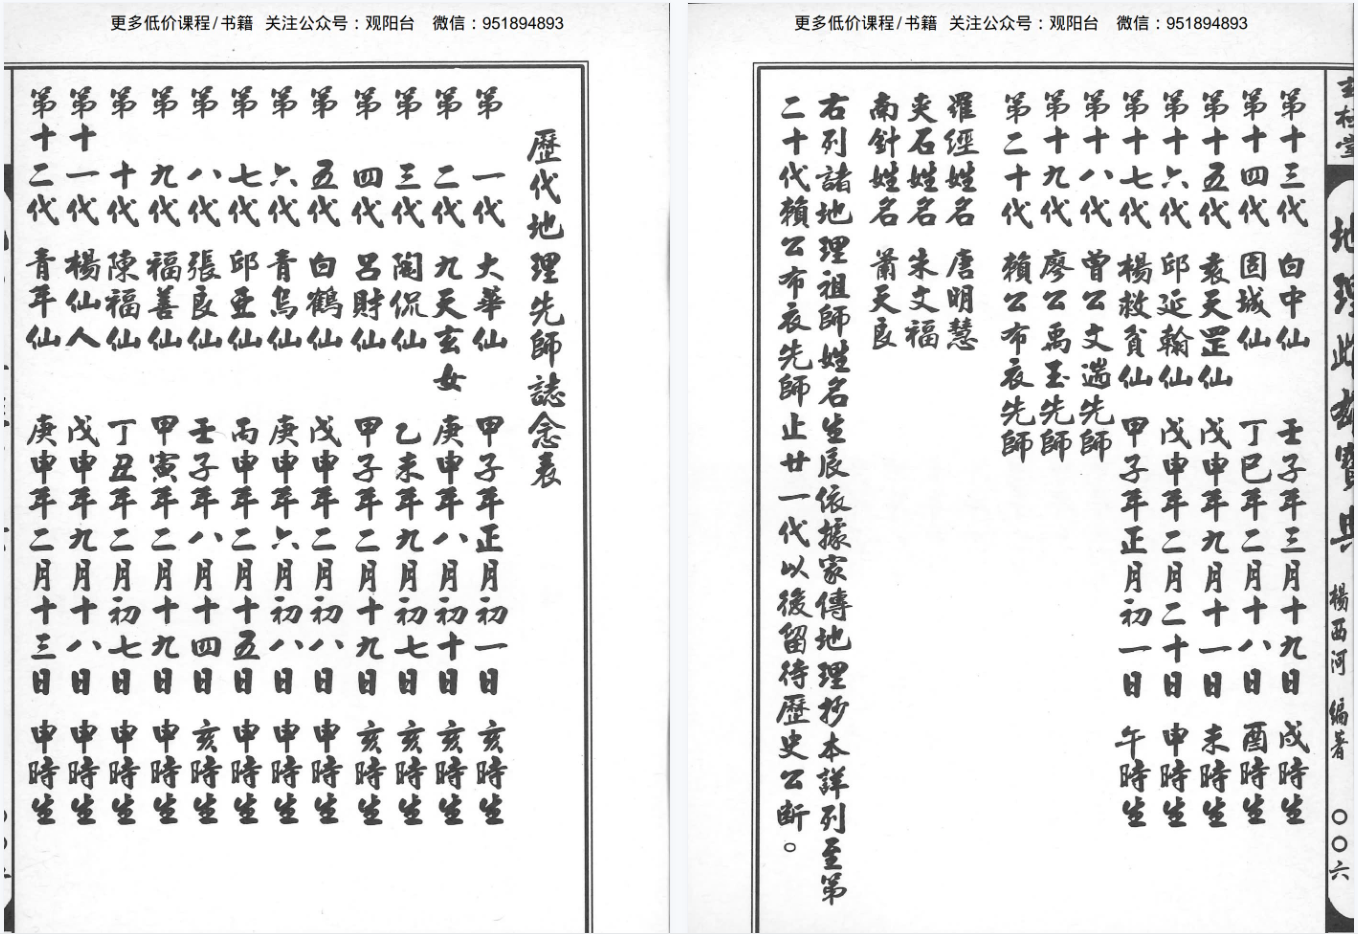 更多低价课程/书籍 关注公众号:观阳台 微信:951894893
歷代地理先師誌念表
第一代 大華仙 甲子年正月初一日 亥時生
第二代 九天玄女 庚申年八月初十日 亥時生
第三代 陶侃仙 乙未年九月初七日 亥時生
第四代 呂財仙 甲子年二月十九日 亥時生
第五代 白鶴仙 戊申年二月初八日 申時生
第六代 青烏仙 庚申年六月初八日 申時生
第七代 邱亚仙 丙申年二月十五日 申時生
第八代 張良仙 壬子年八月十四日 亥時生
第九代 福善仙 甲寅年二月十九日 申時生
第十代 陳福仙 丁丑年二月初七日 申時生
第十一代 楊仙人 戊申年九月十八日 申時生
第十二代 青年仙 庚申年二月十三日 申時生
更多低价课程/书籍 关注公众号:观阳台 微信:951894893
地理 寶典 楊西河 編著 〇〇六
第十三代 白中仙 壬子年三月十九日 戌時生
第十四代 固城仙 丁巳年二月十八日 酉時生
第十五代 袁天罡仙 戊申年九月十一日 未時生
第十六代 邱延翰仙 戊申年二月二十日 申時生
第十七代 楊救貧仙 甲子年正月初一日 午時生
第十八代 曾公文遄先師
第十九代 廖公禹玉先師
第二十代 賴公布衣先師
羅經姓名 唐明慧
夾石姓名 朱文福
南針姓名 蕭天良
右列諸地理祖師姓名生辰依據家傳地理抄本詳列至第
二十代賴公布衣先師止廿一代以後留待歷史公断。